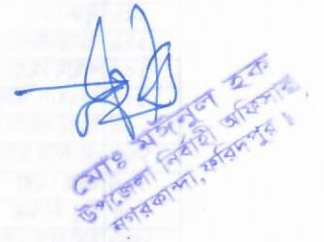 মোঃ মঈনুল হক
উপজেলা নির্বাহী অফিসার
নগরকান্দা, ফরিদপুর।